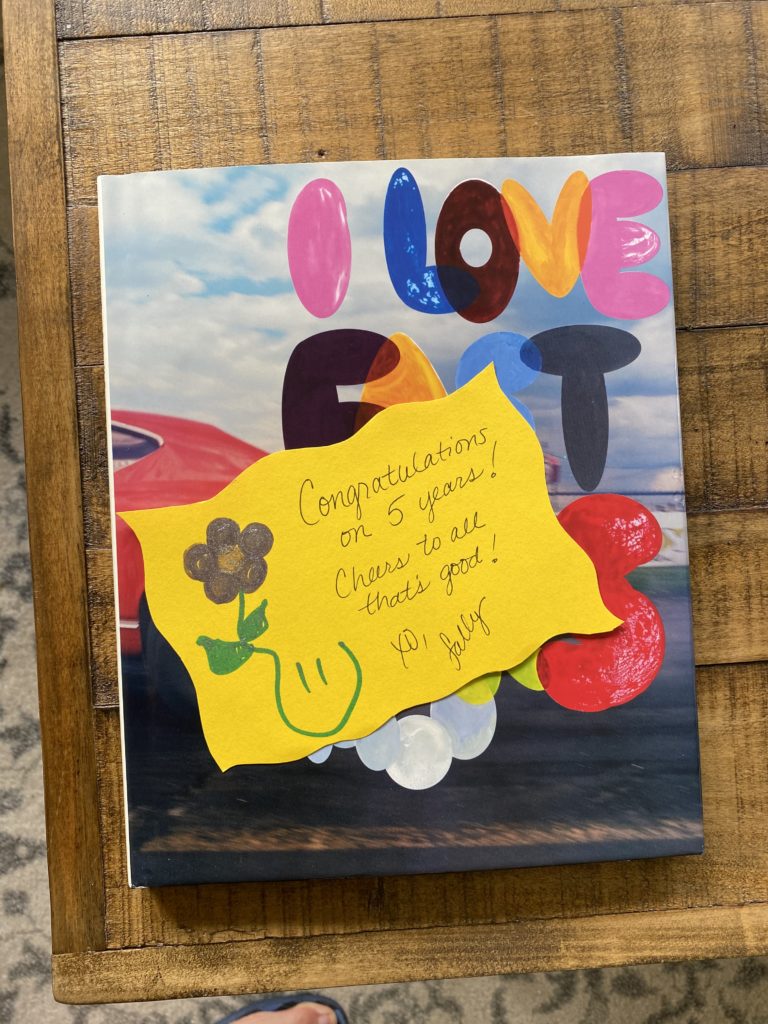 I LOVE
FAST
Congratulations
on 5 years!
Cheers to all
that's good!
XO,
Sally